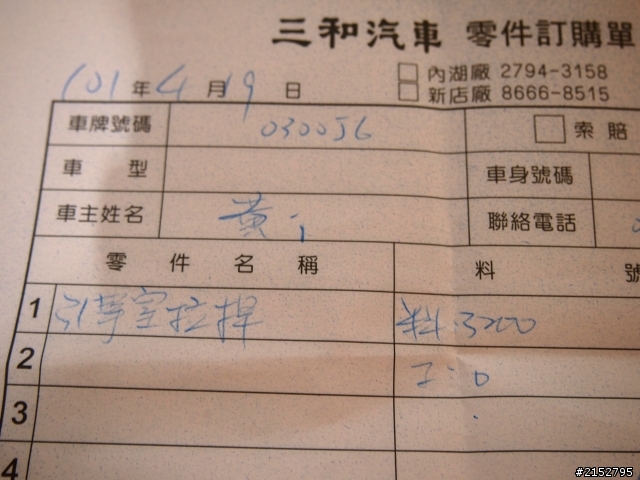 三和汽車 零件訂購單
內湖廠 2794-3158
101年4月19日
新店廠 8666-8515
車牌號碼 0300J6 索賠
車型 車身號碼
車主姓名 黃 聯絡電話
零件名稱 料號
1 引擎室拉捍 料:3200
2 工:0
3
4
#2152795